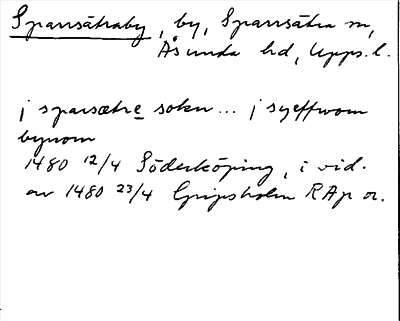 Sparrsätraby, by, Sparrsätra sn,
Åsunda hd, Upps. l.
j sparsætre sokn... j syeffwom
bynom
1480 12/4 Söderköping, i vid.
av 1480 23/4 Gripsholm RAp or.